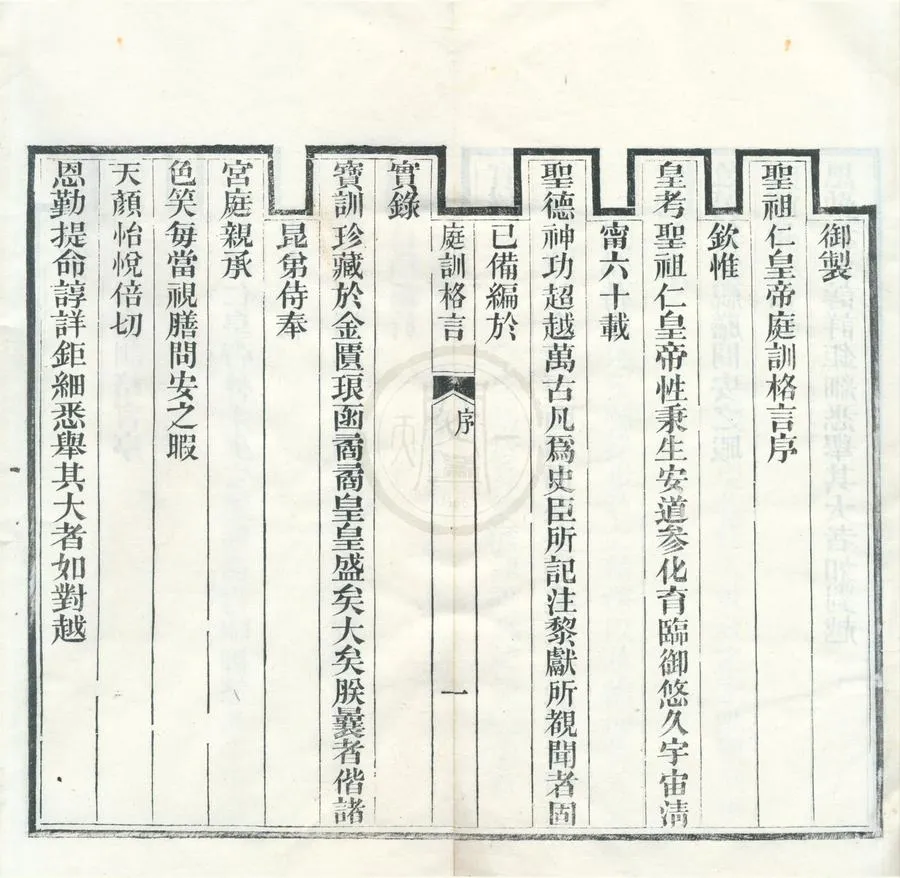 御製
聖祖仁皇帝庭訓格言序
欽惟
皇考聖祖仁皇帝性秉生安道參化育臨御悠久宇宙清
甯六十載
聖德神功超越萬古凡爲史臣所記注黎獻所覩聞者固
已備編於
庭訓格言
序
一
實錄
寶訓珍藏於金匱琅函矞矞皇皇盛矣大矣朕曩者偕諸
昆弟侍奉
宮庭親承
色笑每當視膳問安之暇
天顏怡悅倍切
恩勤提命諄詳鉅細悉舉其大者如對越